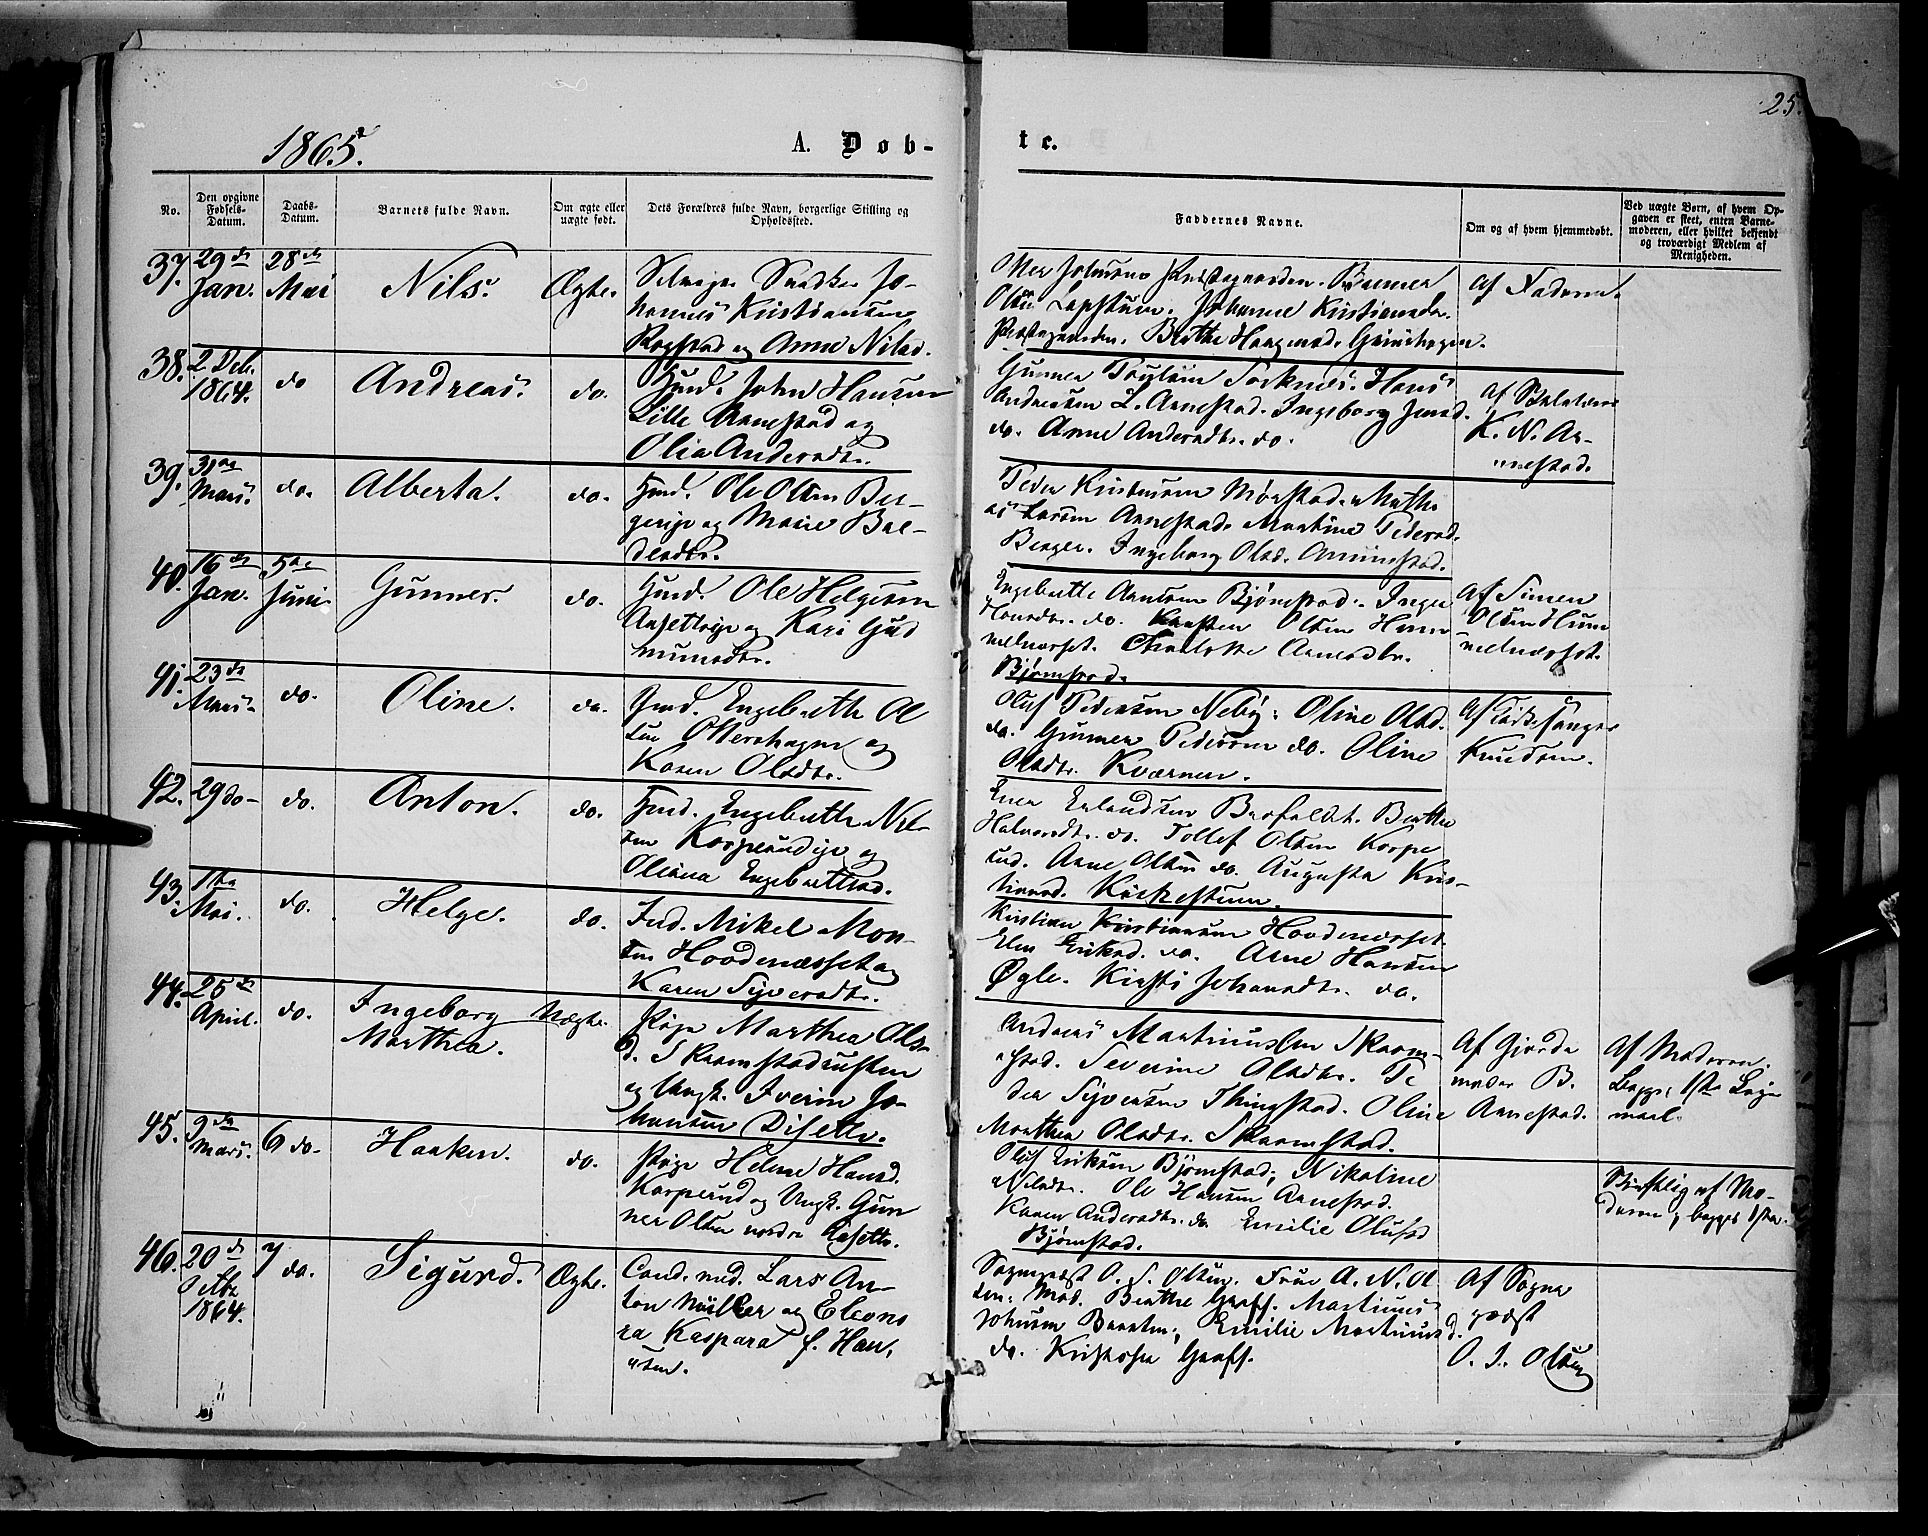 25.
1865.
A. Døb-
te.
No.
Den opgivne Fødsels-Datum.
Daabs-Datum.
Barnets fulde Navn.
Om ægte eller uægte født.
Dets Forældres fulde Navn, borgerlige Stilling og Opholdssted.
Faddernes Navne.
Om og af hvem hjemmedøbt.
Ved uægte Børn, af hvem Opgaven er skeet, enten Barnemoderen, eller hvilket bekjendt og troværdigt Medlem af Menigheden.
37. 29de Jan. 28de Mai Nils. Ægte.
Selveier Jo-
hannes Kristiansen
og Anne Nilsd.
Johannes Kristiansdr.
Berthe
Af Faderen.
38. 2 Deb. 1864. do Andreas. do.
Husd. John Hansen
Lille Arnestad og
Olia Andersdtr.
Gunner Paulsen Hans
Andersen L. Arnestad. Ingeborg Jensd.
do. Anne Andersdtr. do.
Af
K. N. Ar-
nestad.
39. 31te Mars. do. Alberta. do.
Husd. Ole Olsen Ber-
gerije og Marie Bal-
Peder Kristensen Mørstad. Mathi
as Larsen Arnestad. Martine Pedersd.
Berger. Ingeborg Olsd.
40. 16de Jan. 5te Juni Gunner. do.
Husd. Ole Helgesen
og Kari Gud
mundsdtr.
Engebrette Arntsen Bjørnstad. Inger
Hansdtr. do. Karsten Olsen Hum-
melnæsset. Charlotte Arnesdtr.
Bjørnstad.
Af Simen
Olsen Hum
melnæsset.
41. 23de Mars do. Oline. do.
Husd. Engebrette Ol
sen Ottershagen og
Karen Olsdtr.
Oluf Pedersen Neby. Oline Olsd.
do. Gunner Pedersen do. Oline
Olsdtr. Kværnen.
Af Kirkesanger
Knudsen.
42. 29 do- do. Anton. do.
Husd. Engebrette Nil-
sen Korperudije og
Oleana Engebretsd.
Ener Erlandsen Berthe
Halvorsdtr. do. Tollef Olsen Korpe
rud. Arne Olsen do. Augusta Kris-
tiansd. Kirkestuen.
43. 1te Mai. do. Helge. do.
Ind. Mikel Mon-
sen Hoodenæsset og
Karen Syversdtr.
Kristian Kristiansen Hoodenæsset
Elen Eriksd. do. Arne Hansen
Øgle. Kirsti Johansdtr. do.
44. 25de April. do. Ingeborg Marthea. Uægte.
Pige Marthea Ols-
d. Skramstadeusten
og Ungk. Iverin Jo-
hansen Disetlr.
Andreas Martinussen Skram-
stad. Severine Olsdtr. Pe
der Syversen Thingstad. Oline
Marthea Olsdtr. Skramstad.
Af Gjorde
moder B.
Arnestad.
Af Moderen.
Begges 1ste Leje
maal.
45. 9de Mars. 6 do. Haaken. do.
Pige Helene Hansd.
Korperud og Ungk. Gun
ner Olsen nordre
Oluf Eriksen Bjørnstad; Nikoline
Nilsdtr. Ole Hansen Arnestad.
Karen Andersdtr. do Emilie Olufsd
Bjørnstad.
Skriftlig af Mo-
deren; begges 1ste.
46. 20de Oktbr 1864. 7 do. Sigurd. Ægte.
Cand. med. Lars An-
ton Müller og Eleono
ra Kaspara f. Han-
sen.
Sognepræst O. S. Olsen. Frue A. N. Ol
sen. Mad. Berthe Graff. Martinus
Johnsen Emilie Martinusd.
do. Kristofer Graff.
Af Sogne
præst
O. S. Olsen